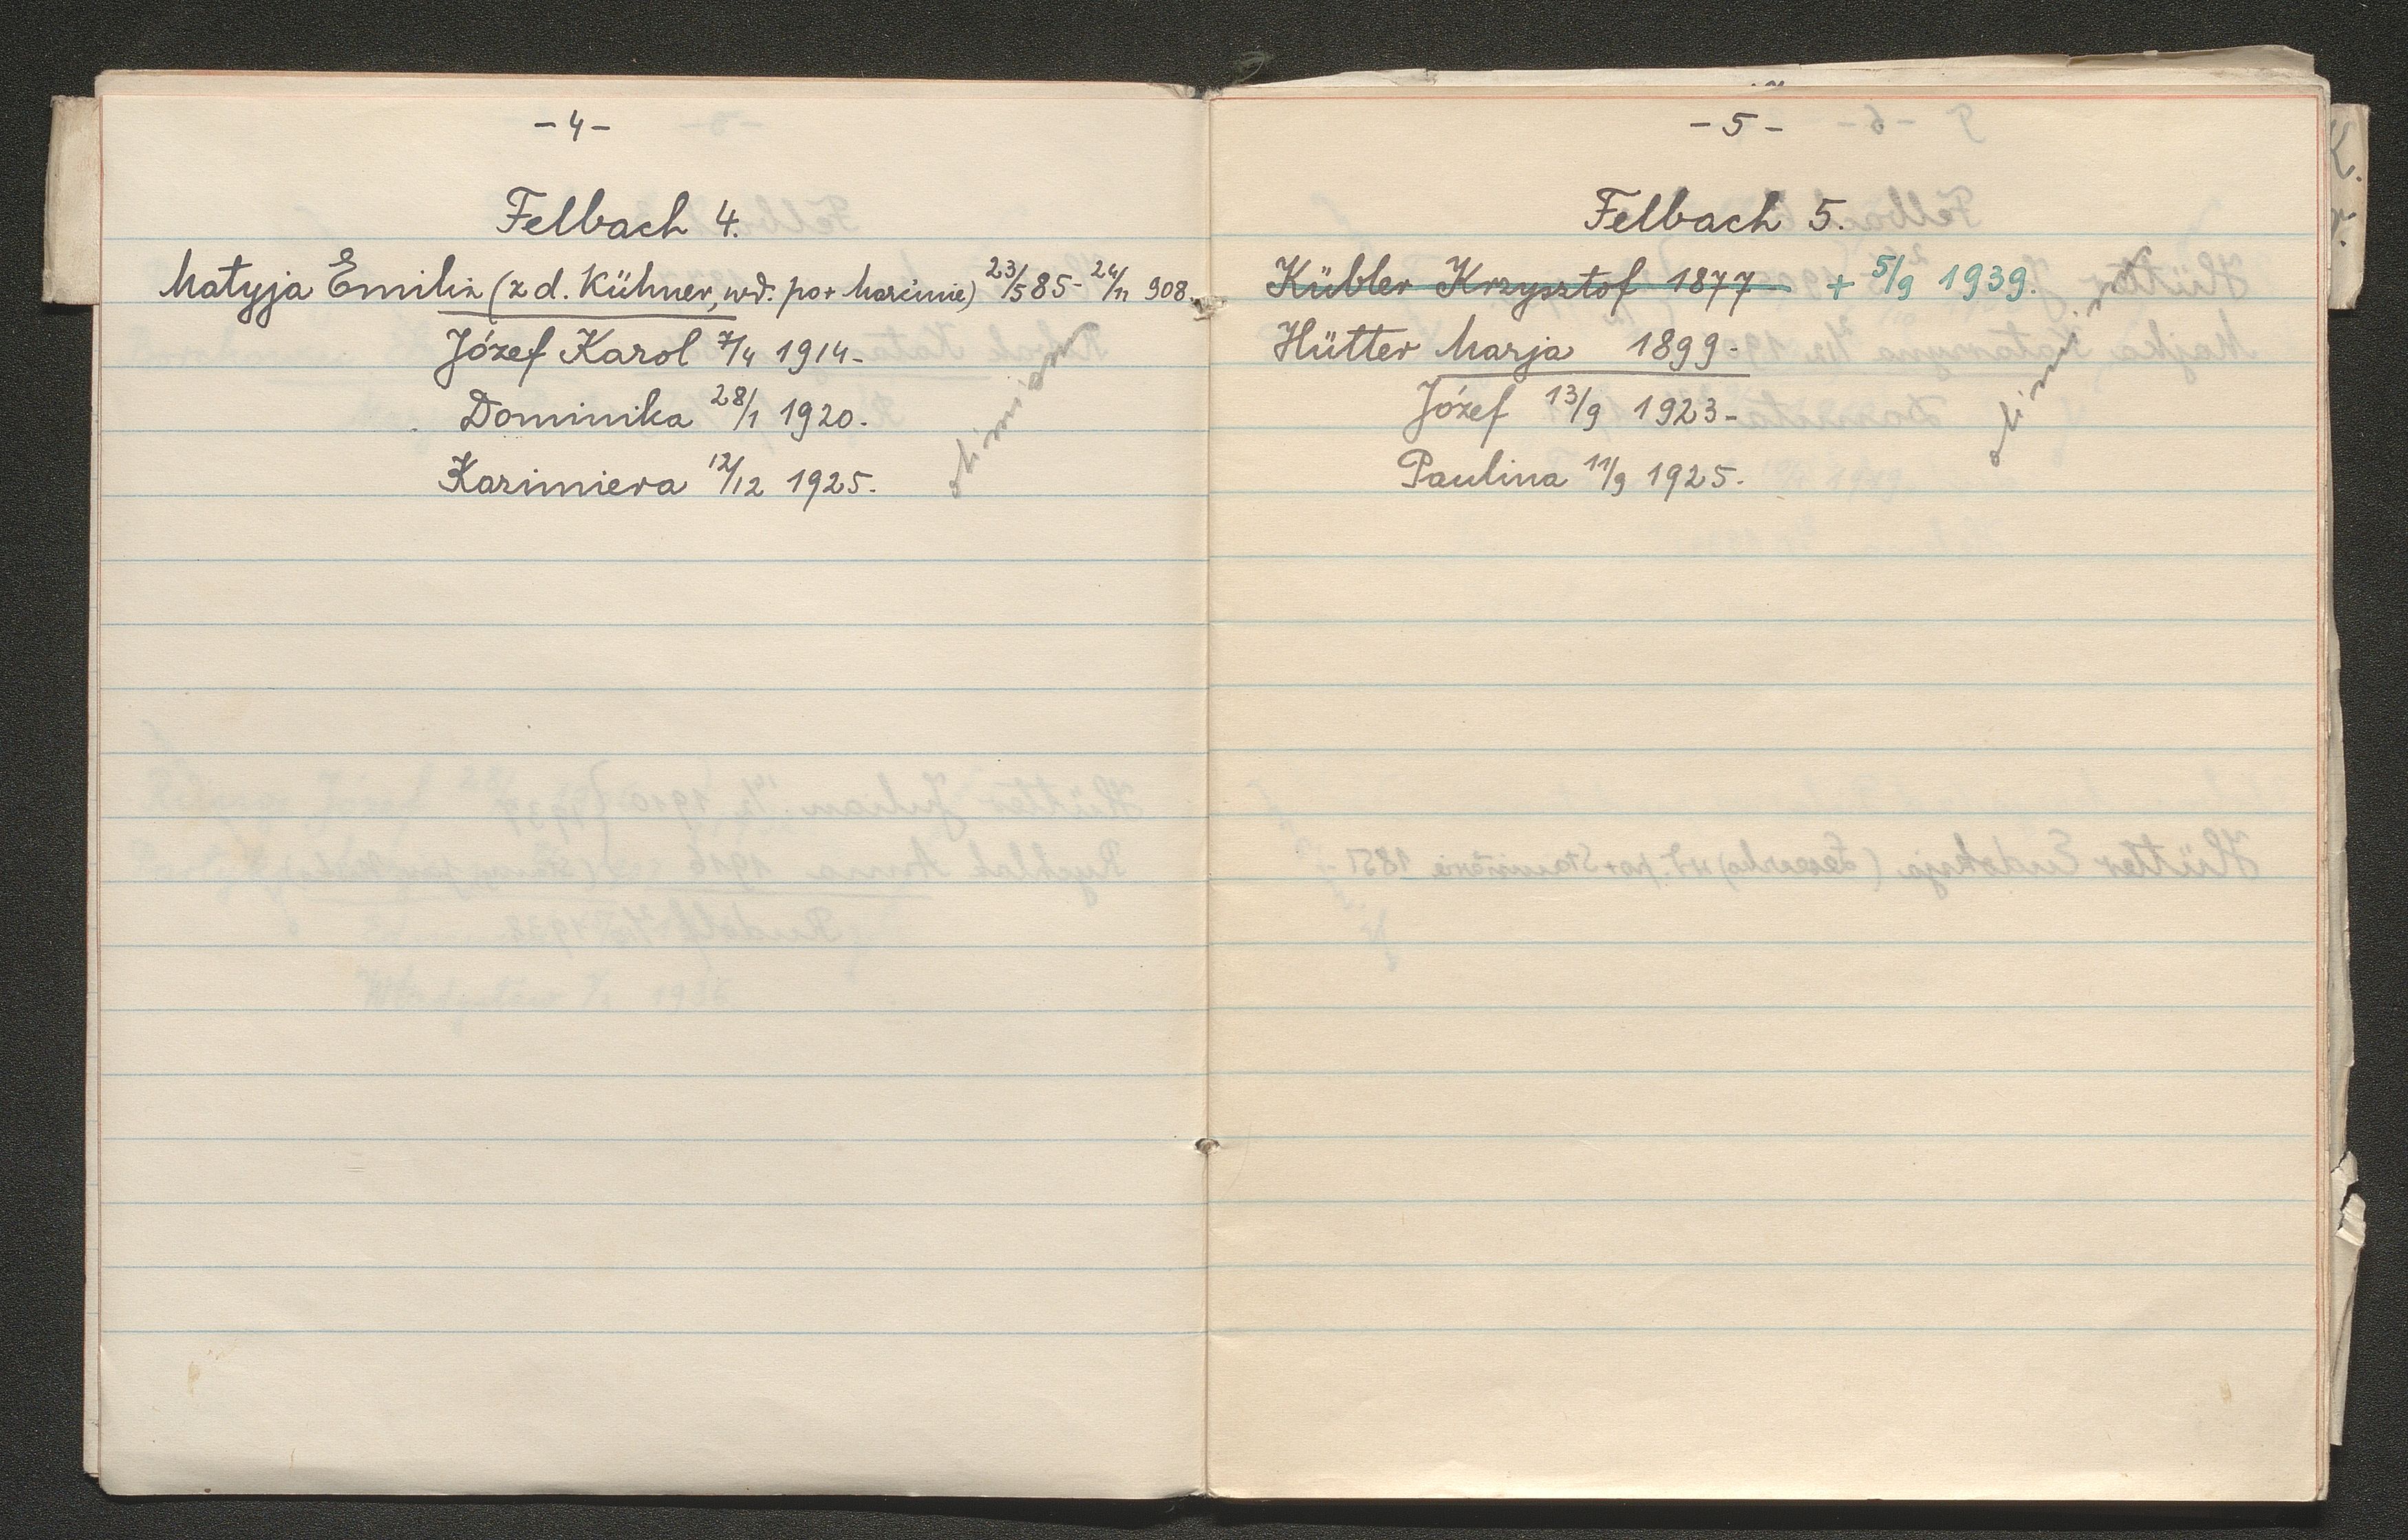 - 4 -
Felbach 4.
Matyja Emilia (z d. Kühner, wd. po + Marcinie) 23/5 85 - 24/11 908.
Józef Karol 7/4 1914 -
Dominika 28/1 1920.
Kazimiera 12/12 1925.
- 5 -
Felbach 5.
Kübler Krzysztof 1877 + 5/9 1939.
Hütter Marja 1899 -
Józef 13/9 1923 -
Paulina 11/9 1925.